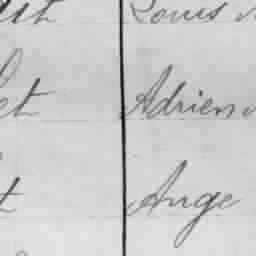 Louis
et Adrien
t Ange